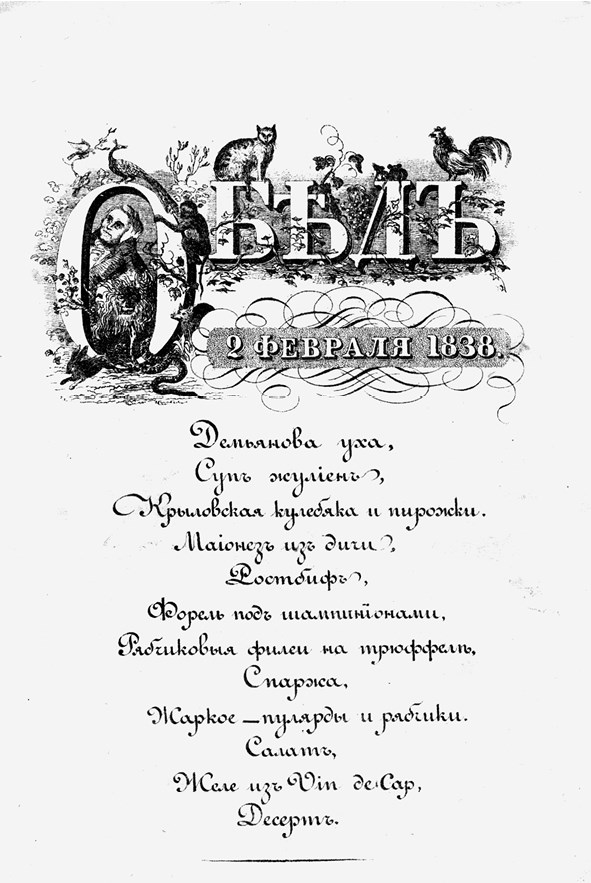 ОБѢДЪ
2 ФЕВРАЛЯ 1838.
Демьянова уха,
Супъ жуліенъ,
Крыловская кулебяка и пирожки.
Маіонезъ изъ дичи,
Ростбифъ,
Форель подъ шампиніонами,
Рябчиковыя филеи на трюффелѣ,
Спаржа,
Жаркое — пулярды и рябчики.
Салатъ,
Желе изъ Vin de Cap,
Десертъ.